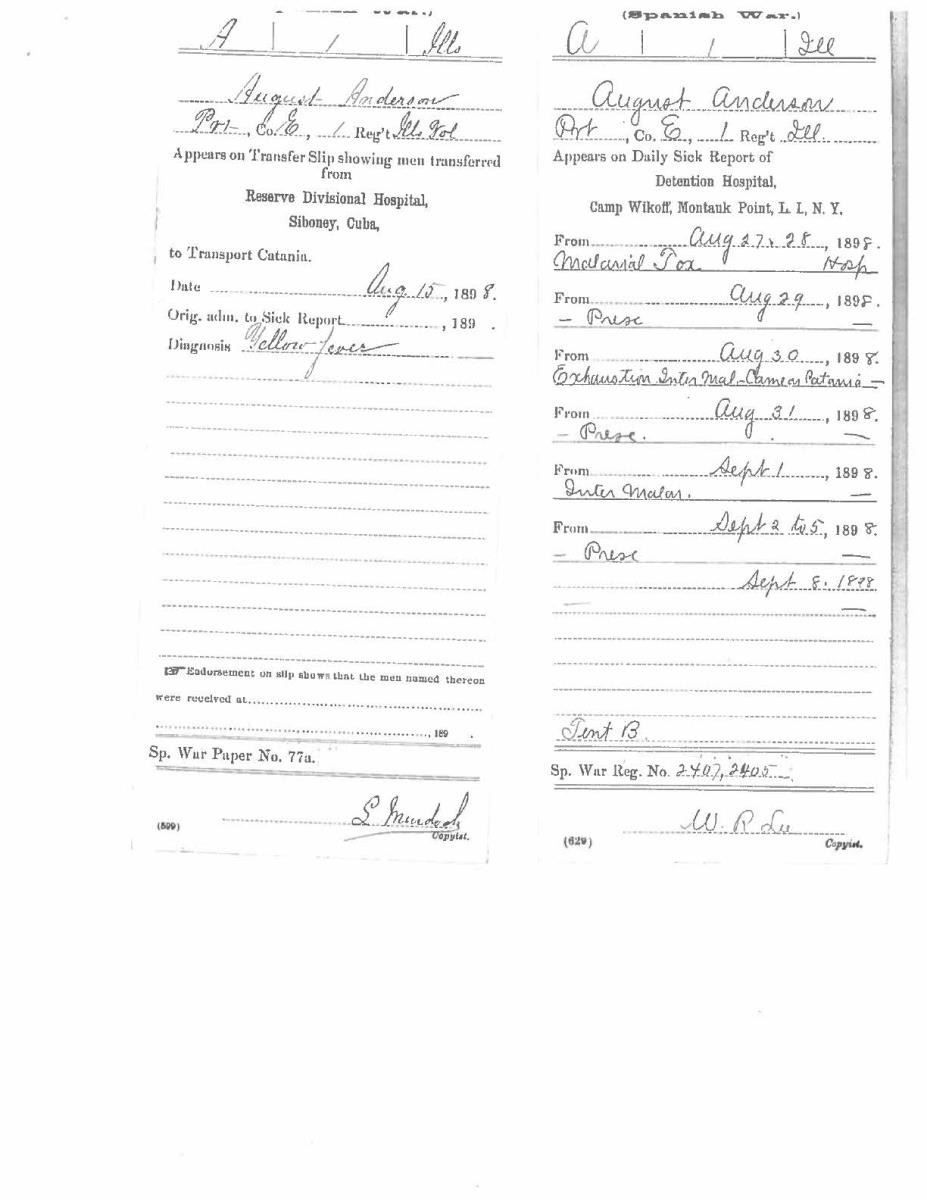 A | 1 | Ills
August Anderson
Prt, Co. E, 1 Reg't Ills Vol
Appears on Transfer Slip showing men transferred
from
Reserve Divisional Hospital,
Siboney, Cuba,
to Transport Catania.
Date Aug 15, 1898.
Orig. adm. to Sick Report , 189 .
Diagnosis Yellow fever
☞ Endorsement on slip shows that the men named thereon
were received at
, 189 .
Sp. War Paper No. 77a.
S Murdoch
(599) Copyist.
(Spanish War.)
A | 1 | Ill
August Anderson
Prt, Co. E, 1 Reg't Ill.
Appears on Daily Sick Report of
Detention Hospital,
Camp Wikoff, Montauk Point, L. I., N. Y.
From Aug 27, 28, 1898.
Malarial Tox Hosp
From Aug 29, 1898.
— Presc —
From Aug 30, 1898.
Exhaustion Inter Mal – Came on Catania —
From Aug 31, 1898.
— Presc. —
From Sept 1, 1898.
Inter Malar. —
From Sept 2 to 5, 1898.
— Presc —
Sept 8. 1898
— —
Tent B
Sp. War Reg. No. 2407, 2405
W. R. Lee
(629) Copyist.